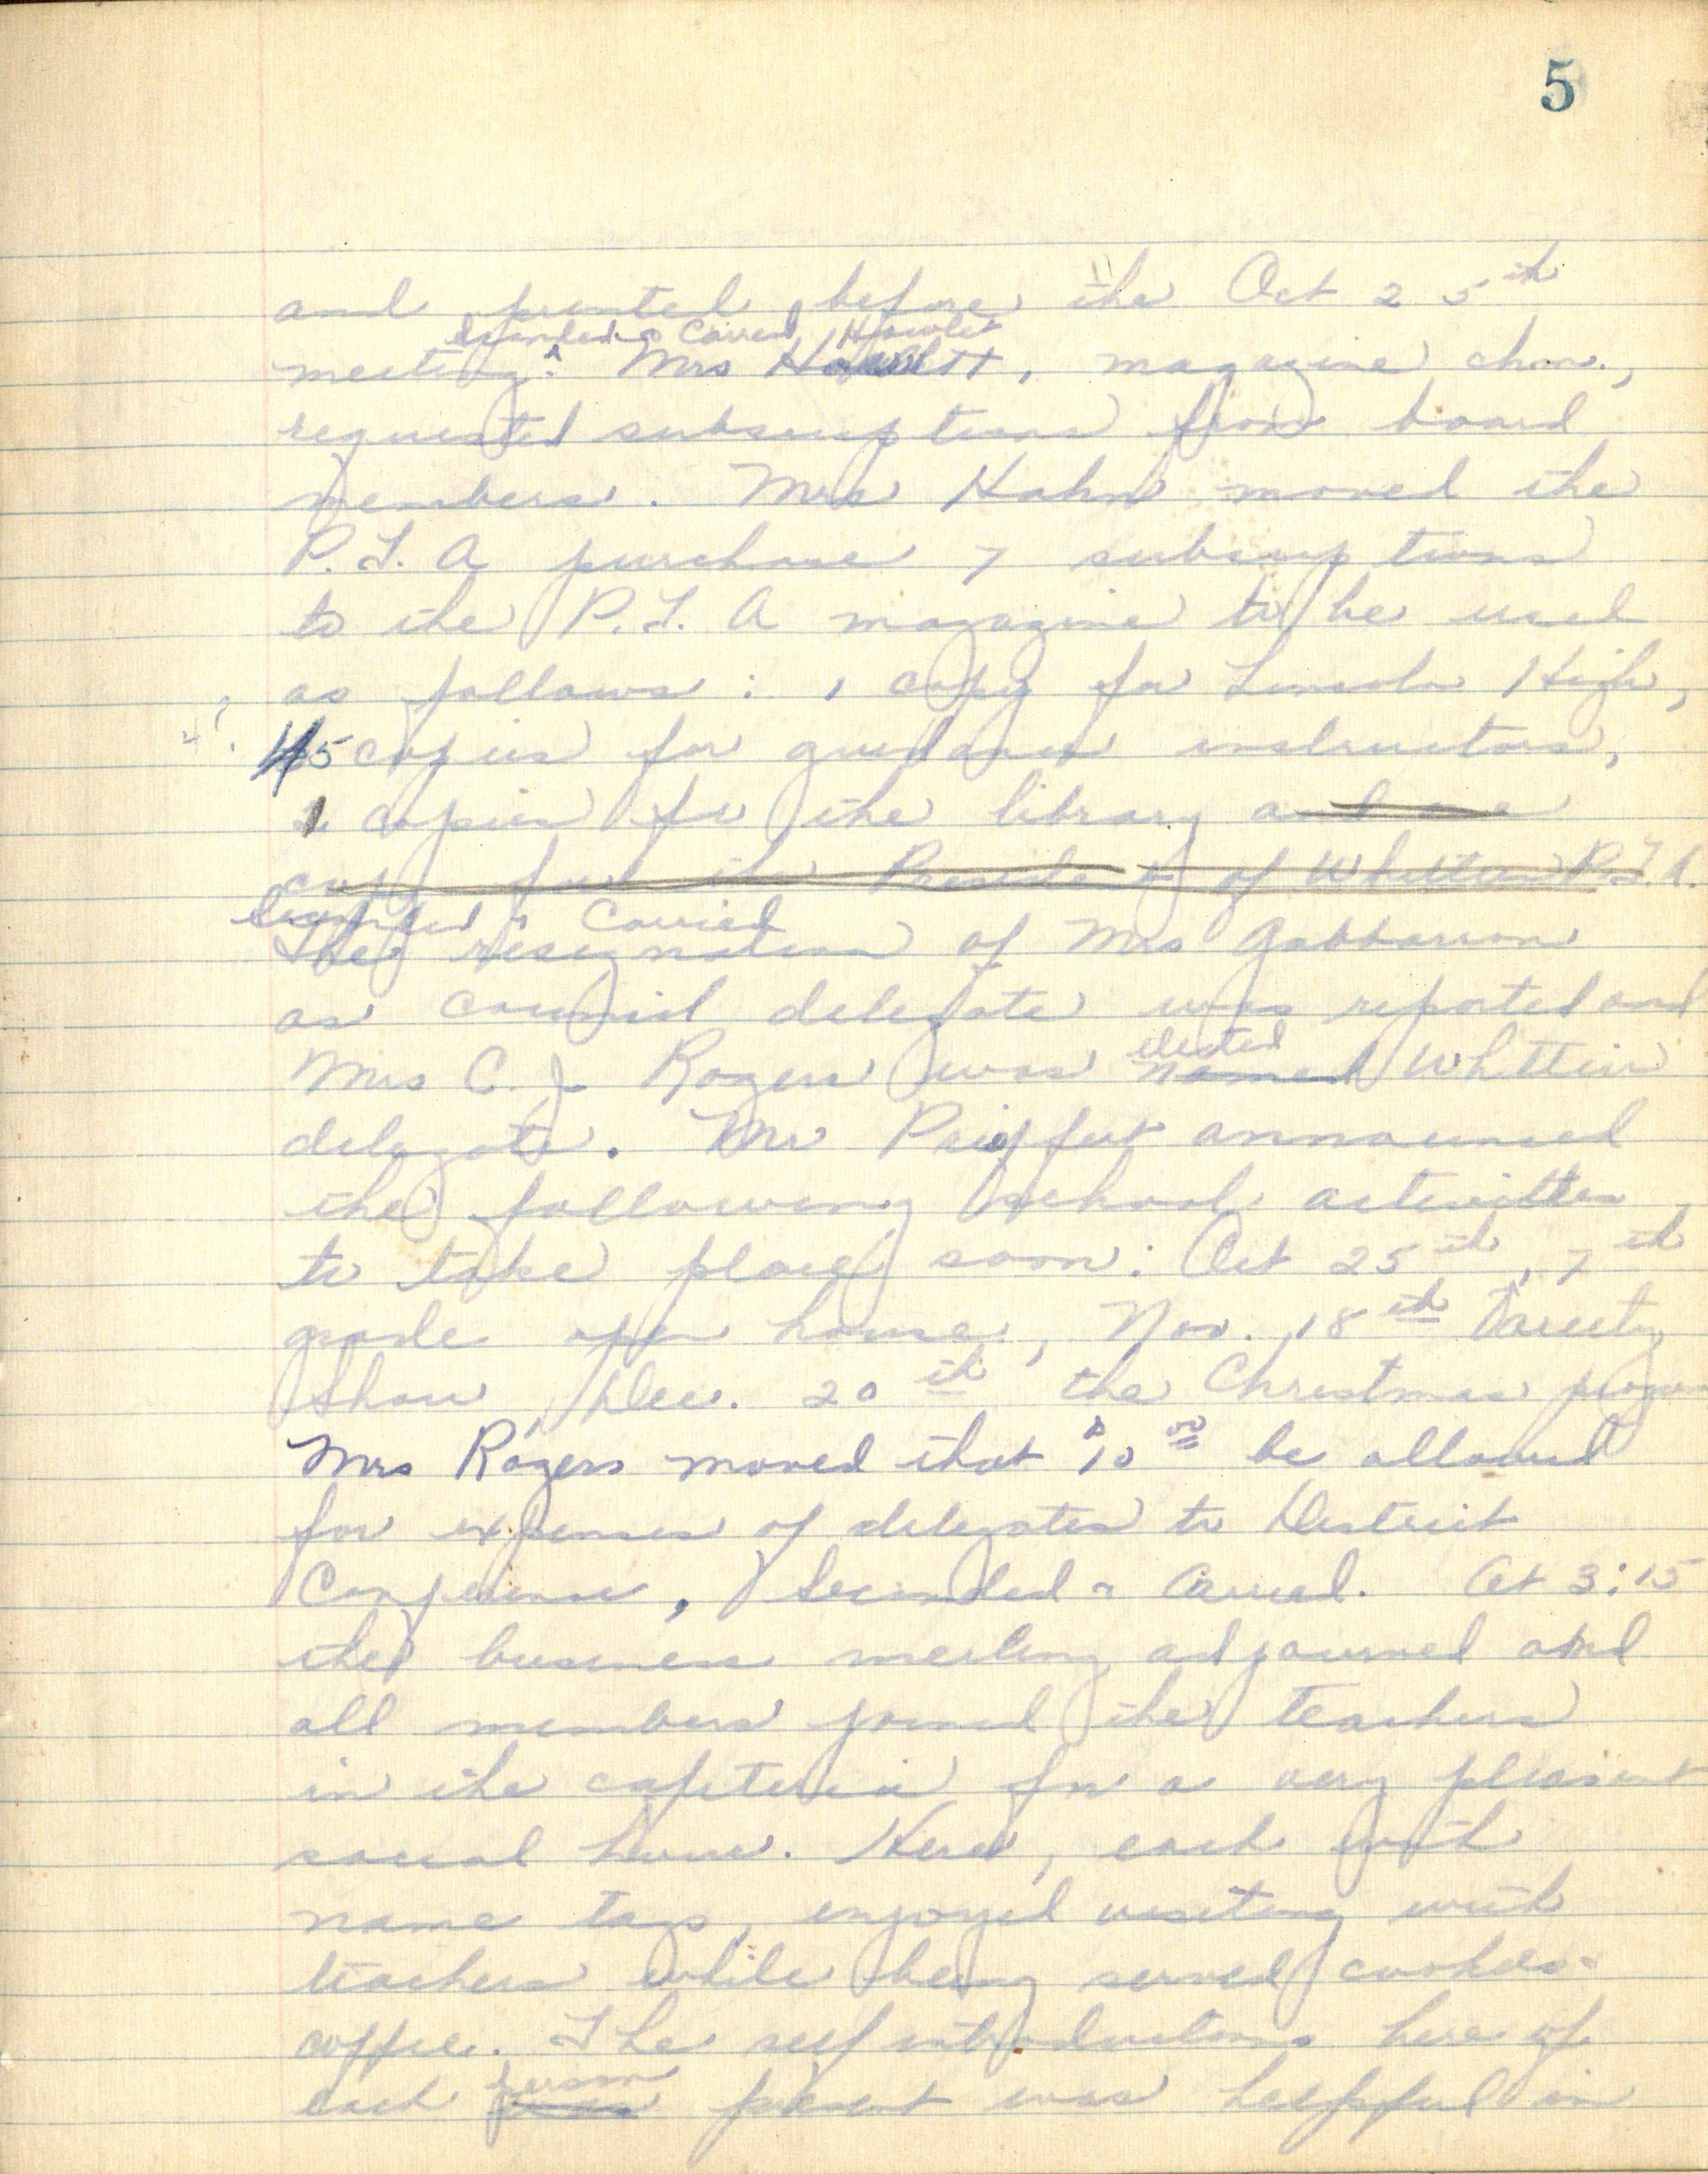 5
and printed before the Oct 25th
seconded & Carried, Howlet
meeting. Mrs Howlett, magazine chm.,
requested subscriptions from board
members. Mrs Hahn moved the
P.T.A purchase 7 subscriptions
to the P.T.A magazine to be used
as follows: 1 copy for Lincoln High,
5 copies for guidance instructors,
1 copies for the library and one
copy for the President of Whittier P.T.A.
seconded & Carried
The resignation of Mrs
as council delegate was reported and
elected
Mrs C. J. Rogers was named Whittier
delegate. Mr announced
the following school activities
to take place soon: Oct 25th, 7th
grade open house, Nov. 18th Variety
Show, Dec. 20th the Christmas program
Mrs Rogers moved that $10 00 be allowed
for expenses of delegates to District
Conference, Seconded & Carried. At 3:15
the business meeting adjourned and
all members joined the teachers
in the cafeteria for a very pleasant
social hour. Here, each with
name tags, enjoyed visiting with
teachers while being served cookies &
coffee. The self introductions here of
person
each present was helpful in